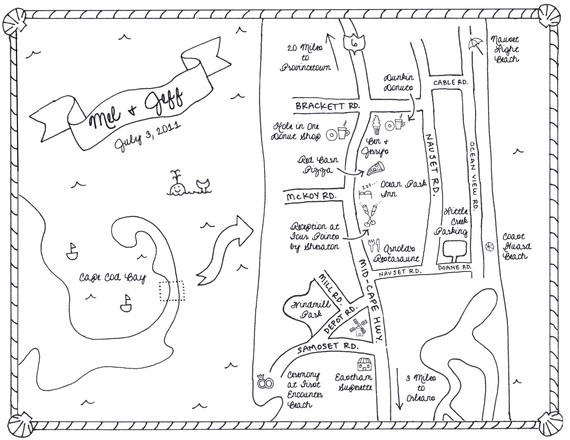 Mel & Jeff
July 3, 2011
Cape Cod Bay
20 Miles
to
Provincetown
6
Nauset
Light
Beach
Dunkin
Donuts
CABLE RD.
BRACKETT RD.
Hole in One
Donut Shop
Ben &
Jerry's
Red Barn
Pizza
NAUSET RD.
OCEAN VIEW RD.
Ocean Park
Inn
McKOY RD.
Little
Creek
Parking
Reception at
Four Points
by Sheraton
Arnold's
Restaurant
Coast
Guard
Beach
NAUSET RD.
DOANE RD.
MID-CAPE HWY.
MILL RD.
Windmill
Park
DEPOT RD.
SAMOSET RD.
Ceremony
at First
Encounter
Beach
Eastham
Superette
3 Miles
to
Orleans